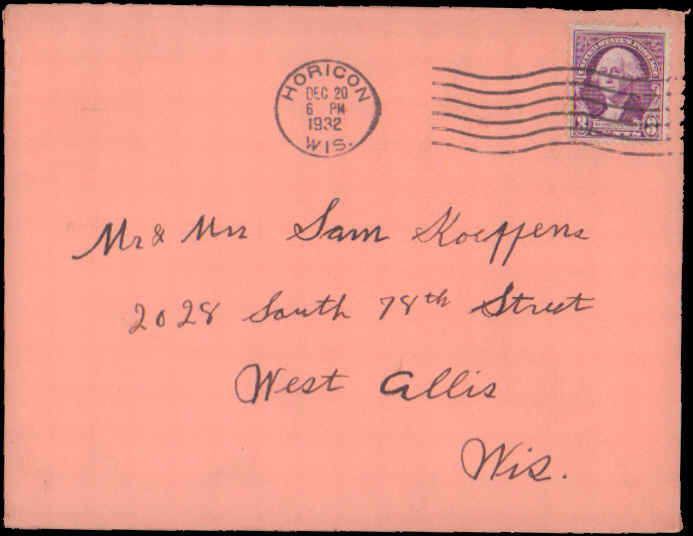 HORICON
DEC 20
6 PM
1932
WIS.
3 3
Mr & Mrs Sam Koeppens
2028 South 78th Street
West Allis
Wis.